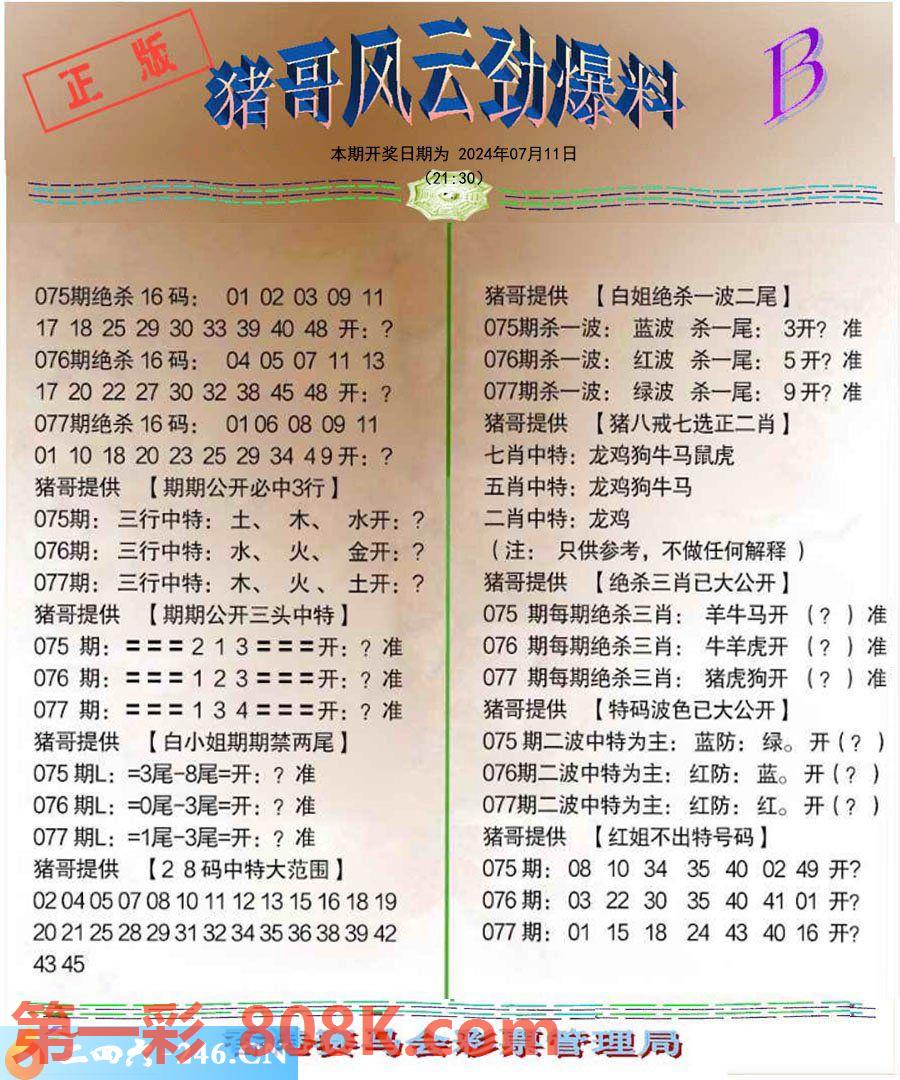 正版
猪哥风云劲爆料
B
本期开奖日期为 2024年07月11日
（21:30）
075期绝杀 16 码： 01 02 03 09 11
17 18 25 29 30 33 39 40 48 开：?
076期绝杀 16 码： 04 05 07 11 13
17 20 22 27 30 32 38 45 48 开：?
077期绝杀 16 码： 01 06 08 09 11
01 10 18 20 23 25 29 34 4 9 开：?
猪哥提供 【期期公开必中3行】
075期： 三行中特： 土、 木、 水开：?
076期： 三行中特： 水、 火、 金开：?
077期： 三行中特： 木、 火、 土开：?
猪哥提供 【期期公开三头中特】
075 期：＝＝＝ 2 1 3 ＝＝＝开：? 准
076 期：＝＝＝ 1 2 3 ＝＝＝开：? 准
077 期：＝＝＝ 1 3 4 ＝＝＝开：? 准
猪哥提供 【白小姐期期禁两尾】
075 期L：=3尾-8尾=开：? 准
076 期L：=0尾-3尾=开：? 准
077 期L：=1尾-3尾=开：? 准
猪哥提供 【2 8 码中特大范围】
02 04 05 07 08 10 11 12 13 15 16 18 19
20 21 25 28 29 31 32 34 35 36 38 39 42
43 45
猪哥提供 【白姐绝杀一波二尾】
075期杀一波： 蓝波 杀一尾： 3开? 准
076期杀一波： 红波 杀一尾： 5 开? 准
077期杀一波： 绿波 杀一尾： 9 开? 准
猪哥提供 【猪八戒七选正二肖】
七肖中特：龙鸡狗牛马鼠虎
五肖中特：龙鸡狗牛马
二肖中特：龙鸡
（注： 只供参考，不做任何解释 ）
猪哥提供 【绝杀三肖已大公开】
075 期每期绝杀三肖： 羊牛马开 （? ）准
076 期每期绝杀三肖： 牛羊虎开 （? ）准
077 期每期绝杀三肖： 猪虎狗开 （? ）准
猪哥提供 【特码波色已大公开】
075 期二波中特为主：蓝防：绿。开 (? )
076期二波中特为主：红防：蓝。开 (? )
077期二波中特为主：红防：红。开 (? )
猪哥提供 【红姐不出特号码】
075 期： 08 10 34 35 40 02 49 开?
076 期： 03 22 30 35 40 41 01 开?
077 期： 01 15 18 24 43 40 16 开?
第一彩 808K.com
二四六-246.CN
彩票管理局